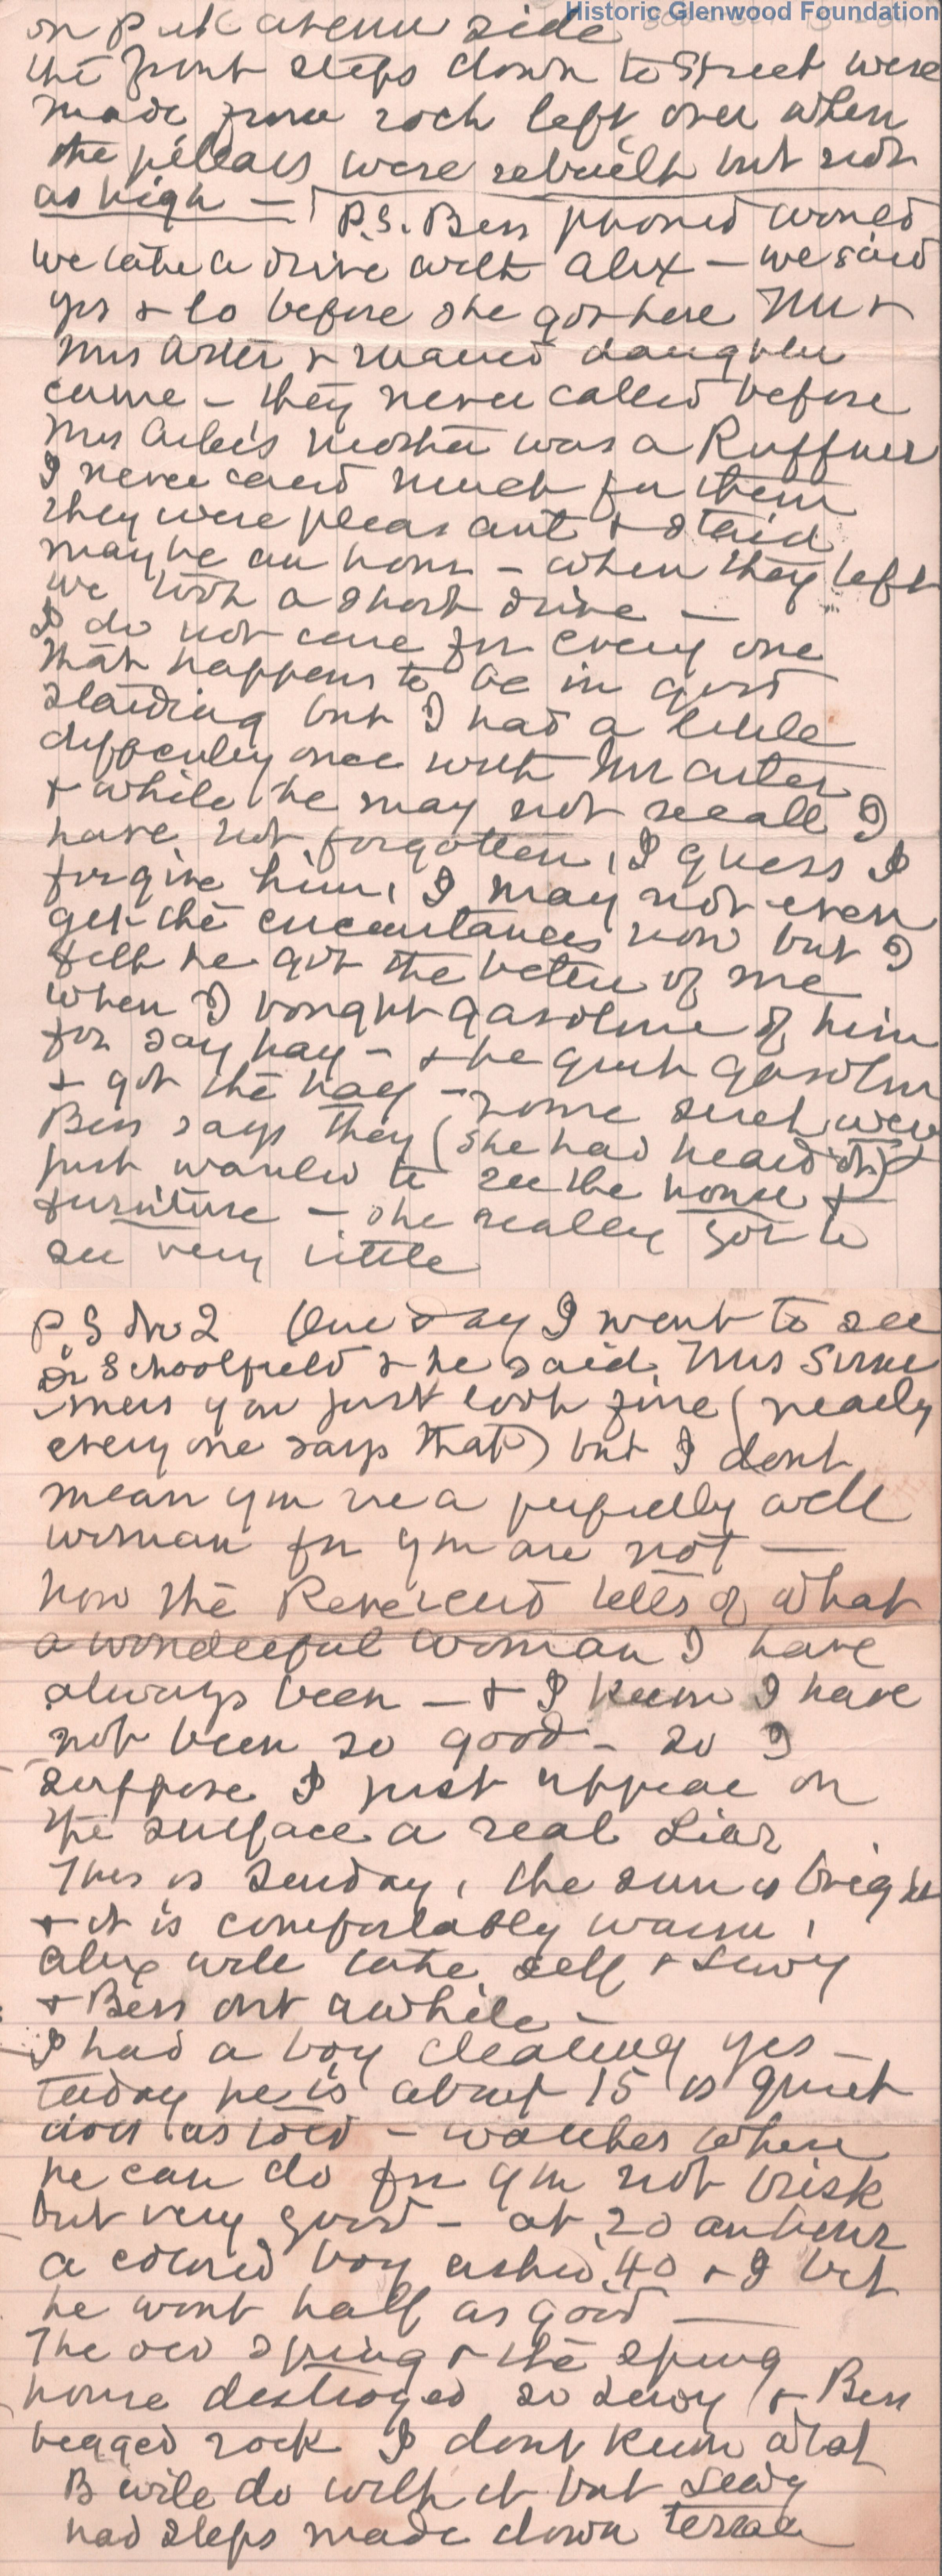 Historic Glenwood Foundation
on Park avenue side
the front steps down to Street were
made from rock left over when
the pillars were rebuilt but not
as high —
P.S. Bess phoned would
we take a drive with Alex — we said
yes & lo before she got here Mr &
Mrs & married daughter
came — they never called before
Mrs mother was a Ruffner
I never cared much for them
they were pleasant & staid
maybe an hour — when they left
we took a short drive —
I do not care for every one
that happens to be in good
standing but I had a little
difficulty once with Mr
& while he may not recall I
have not forgotten, I guess I
forgive him, I may not even
get the circumstances now but I
felt he got the better of me
when I bought gasoline of him
for say hay — & he got gasoline
& got the hay — some such way
Bess says they (she had heard it)
just wanted to see the house &
furniture — she really got to
see very little
P.S No 2 One day I went to see
Dr Schoolfield & he said, Mrs
you just look fine (nearly
every one says that) but I dont
mean you are a perfectly well
woman for you are not —
Now the Reverend tells of what
a wonderful woman I have
always been — & I know I have
not been so good — so I
suppose I just appear on
the surface a real Liar
This is Sunday, the sun is bright
& it is comfortably warm,
Alex will take self & Lucy
& Bess out awhile —
I had a boy cleaning yes —
terday he is about 15 is quiet
does as told — watches where
he can do for you not brisk
but very good — at 20 an hour
a colored boy asked 40 & I bet
he wont half as good —
The old spring & the spring
house destroyed so Lucy & Bess
begged rock I dont know what
B will do with it but Lucy
had steps made down terrace